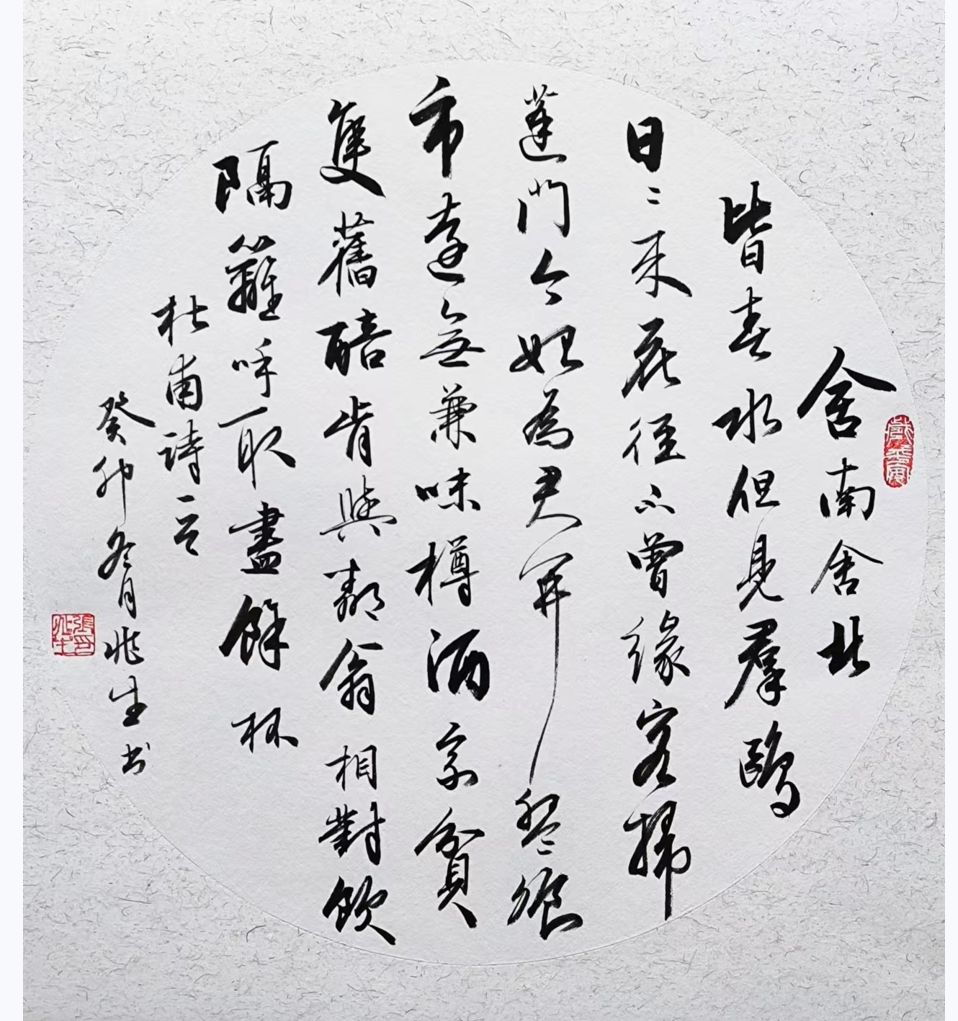 舍南舍北
皆春水但見羣鷗
日〻来花徑不曾緣客掃
蓬門今始為君開盤飧
市遠無兼味樽酒家貧
隻舊醅肯與鄰翁相對飲
隔籬呼取盡餘杯
杜甫詩一首
癸卯冬月兆生书
張印兆生